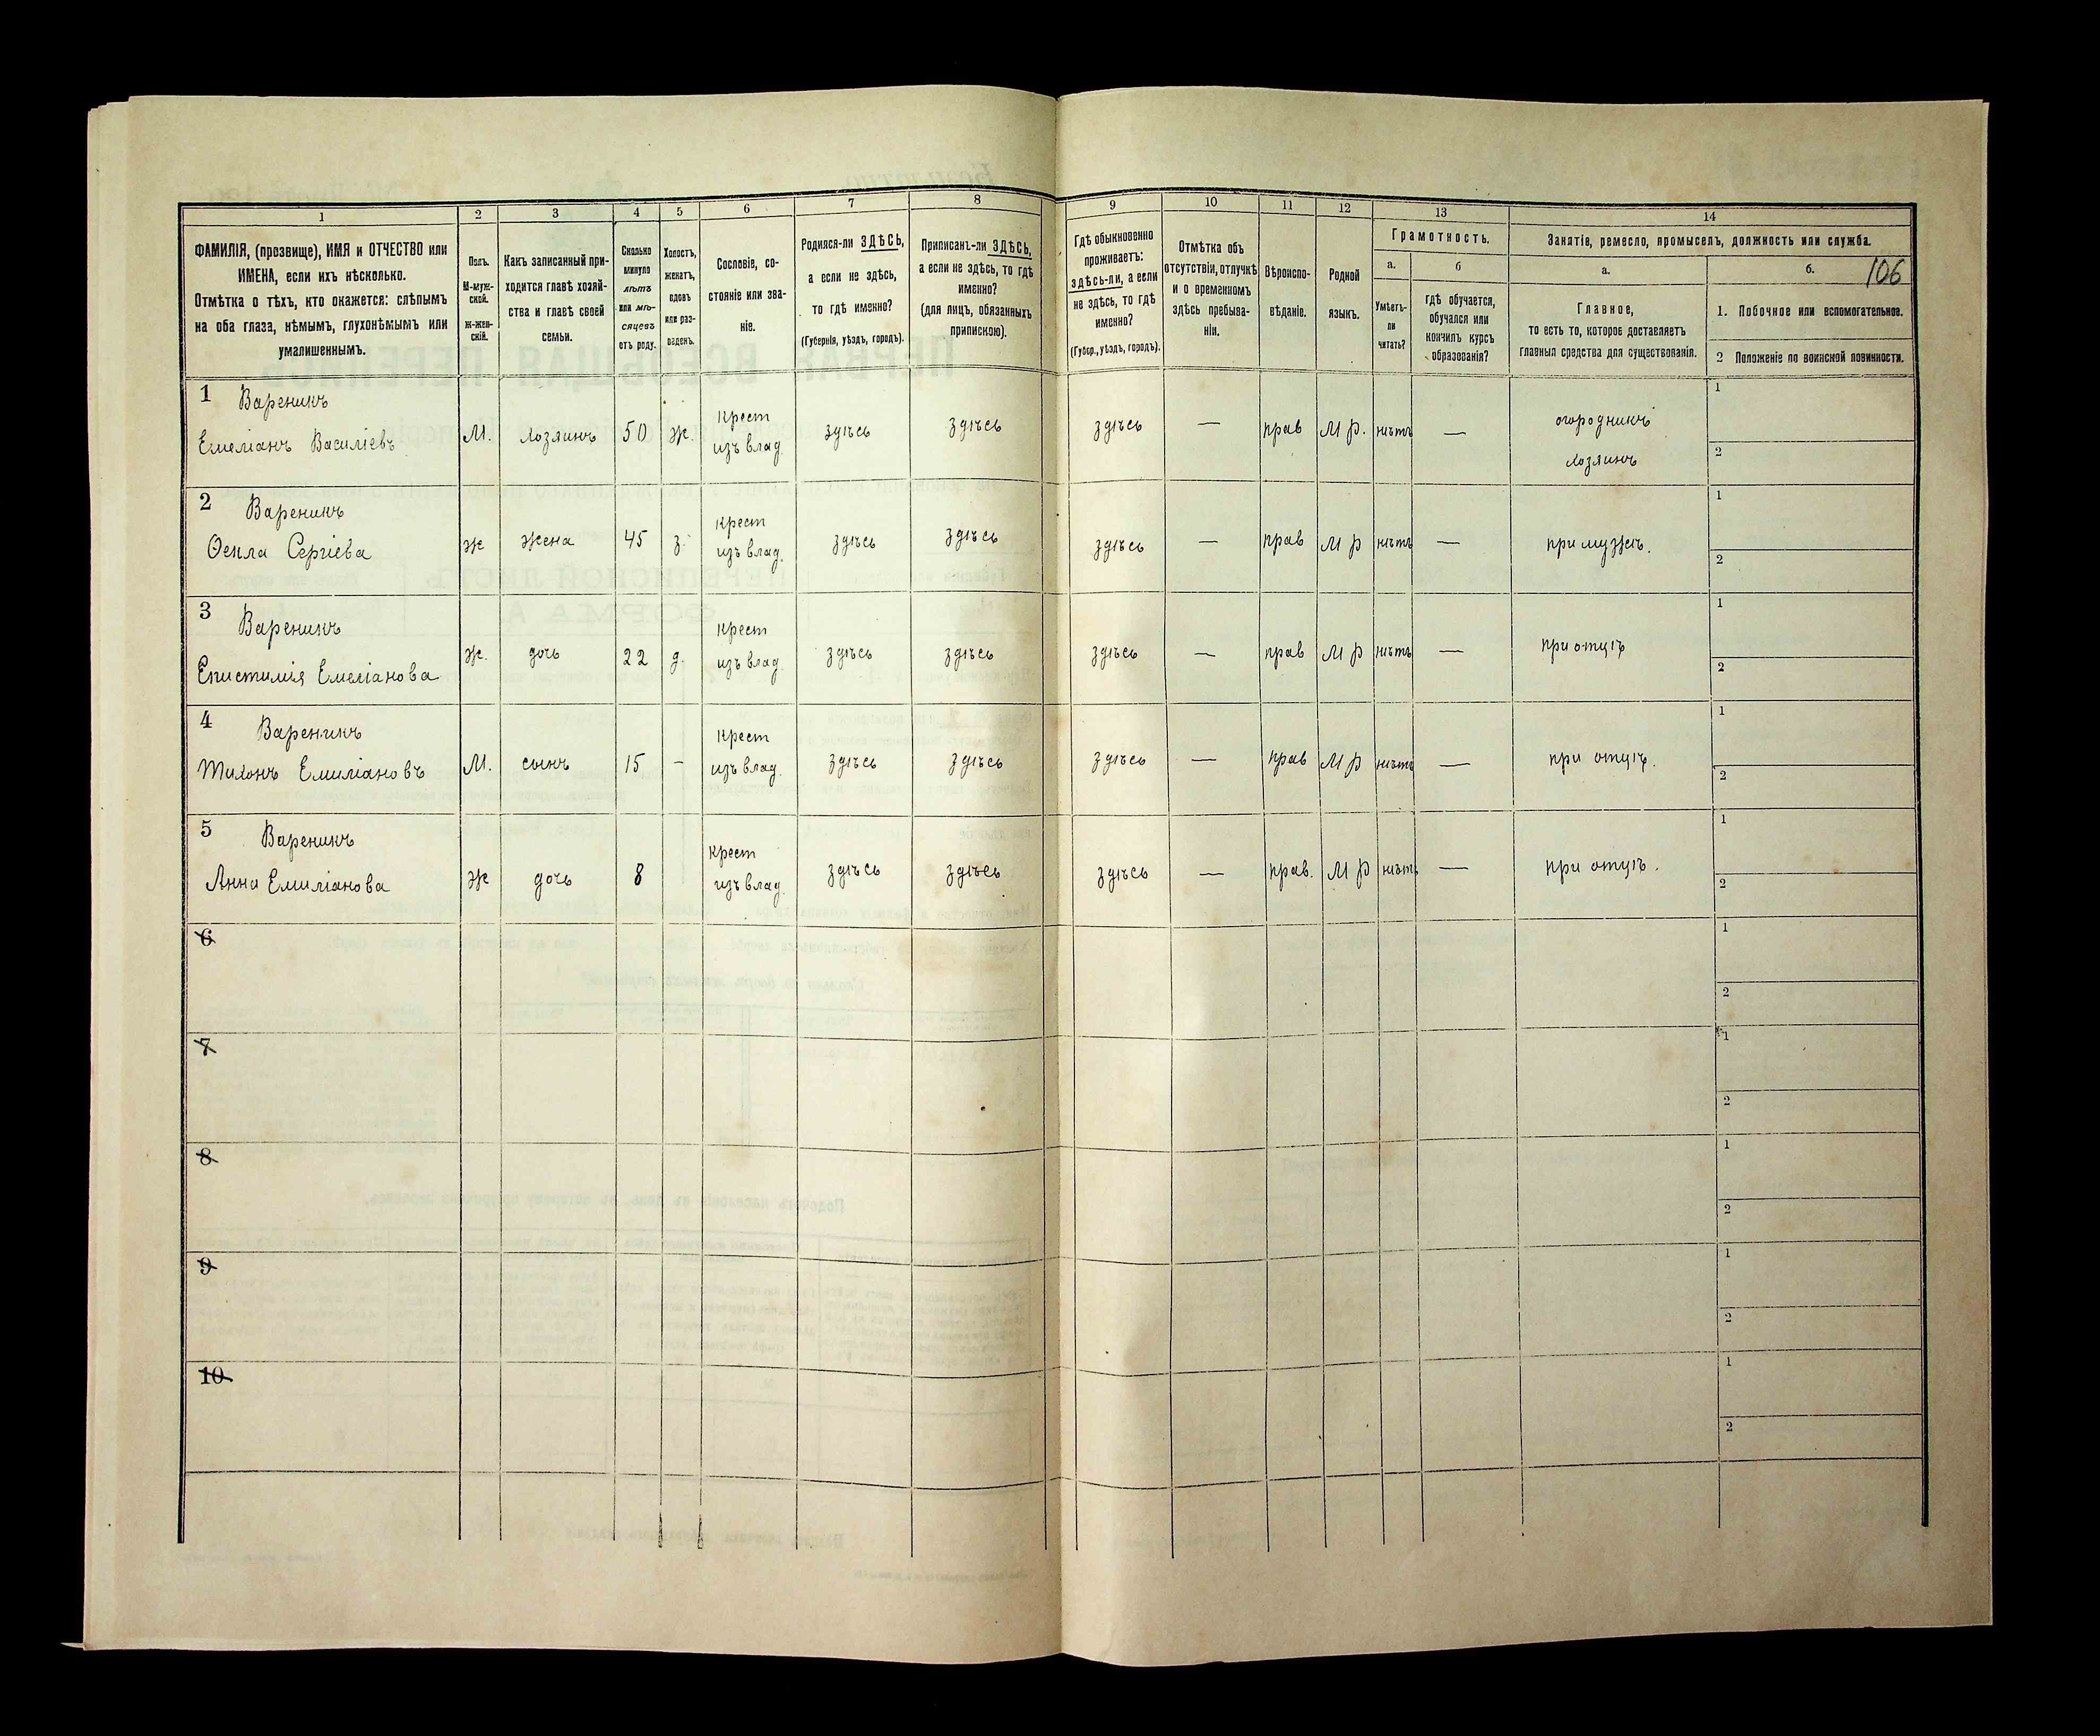 1 2 3 4 5 6 7 8 9 10 11 12 13 14
ФАМИЛІЯ, (прозвище), ИМЯ и ОТЧЕСТВО или
ИМЕНА, если ихъ нѣсколько.
Отмѣтка о тѣхъ, кто окажется: слѣпымъ
на оба глаза, нѣмымъ, глухонѣмымъ или
умалишеннымъ.
Полъ.
М-муж-
ской.
ж-жен-
скій.
Какъ записанный при-
ходится главѣ хозяй-
ства и главѣ своей
семьи.
Сколько
минуло
лѣтъ
или мѣ-
сяцевъ
отъ роду.
Холостъ,
женатъ,
вдовъ
или раз-
веденъ.
Сословіе, со-
стояніе или зва-
ніе.
Родился-ли ЗДѢСЬ,
а если не здѣсь,
то гдѣ именно?
(Губернія, уѣздъ, городъ).
Приписанъ-ли ЗДѢСЬ,
а если не здѣсь, то гдѣ
именно?
(для лицъ, обязанныхъ
припискою).
Гдѣ обыкновенно
проживаетъ:
здѣсь-ли, а если
не здѣсь, то гдѣ
именно?
(Губер., уѣздъ, городъ).
Отмѣтка объ
отсутствіи, отлучкѣ
и о временномъ
здѣсь пребыва-
ніи.
Вѣроиспо-
вѣданіе.
Родной
языкъ.
Грамотность.
а.
Умѣетъ-
ли
читать?
б
гдѣ обучается,
обучался или
кончилъ курсъ
образованія?
Занятіе, ремесло, промыселъ, должность или служба.
а.
Главное,
то есть то, которое доставляетъ
главныя средства для существованія.
б.
106
1. Побочное или вспомогательное.
2 Положеніе по воинской повинности.
1 Вареникъ
Емеліанъ Василіевъ
М. хозяинъ 50 ж. Крест
изъ влад. здѣсь здѣсь здѣсь — прав М р. нѣтъ — огородникъ
хозяинъ
1
2
2 Вареникъ
Ѳекла Сергіева
ж жена 45 з. Крест
изъ влад. здѣсь здѣсь здѣсь — прав М р нѣтъ — при мужѣ.
1
2
3 Вареникъ
Епистимія Емеліанова
ж. дочь 22 д. Крест
изъ влад. здѣсь здѣсь здѣсь — прав М р нѣтъ — при отцѣ
1
2
4 Вареникъ
Тихонъ Емиліановъ
М. сынъ 15 - Крест
изъ влад. здѣсь здѣсь здѣсь — прав М р нѣтъ — при отцѣ.
1
2
5 Вареникъ
Анна Емиліанова
ж дочь 8 Крест
изъ влад. здѣсь здѣсь здѣсь — прав. М р нѣтъ — при отцѣ.
1
2
6
1
2
7
1
2
8
1
2
9
1
2
10
1
2